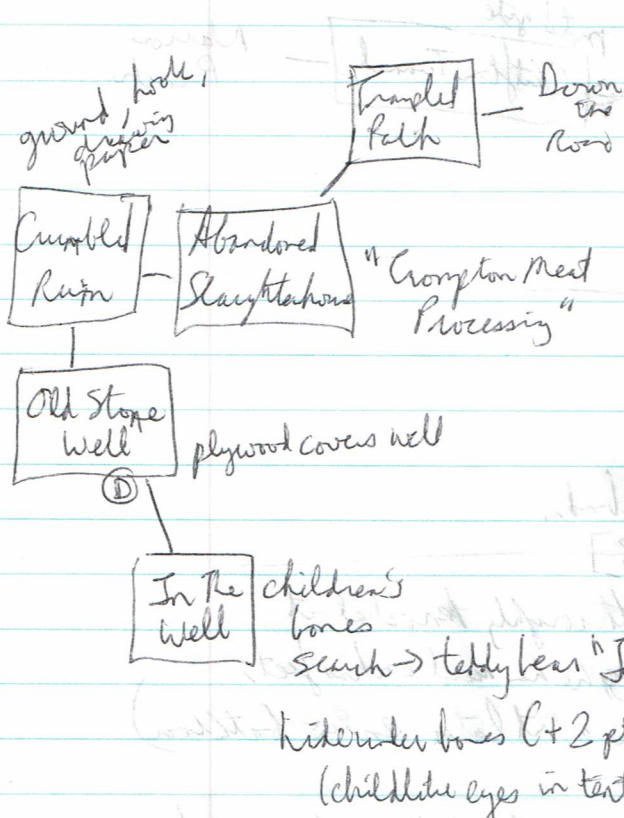 ground, hook,
drawing
paper
Trampled
Path
Down
the
Road
Crumbled
Ruin
Abandoned
Slaughterhouse
"Crompton Meat
Processing"
Old Stone
Well
D
plywood covers well
In The
Well
children's
bones
search → teddy bear "J
hide under bones (+2 p
(childlike eyes in tent